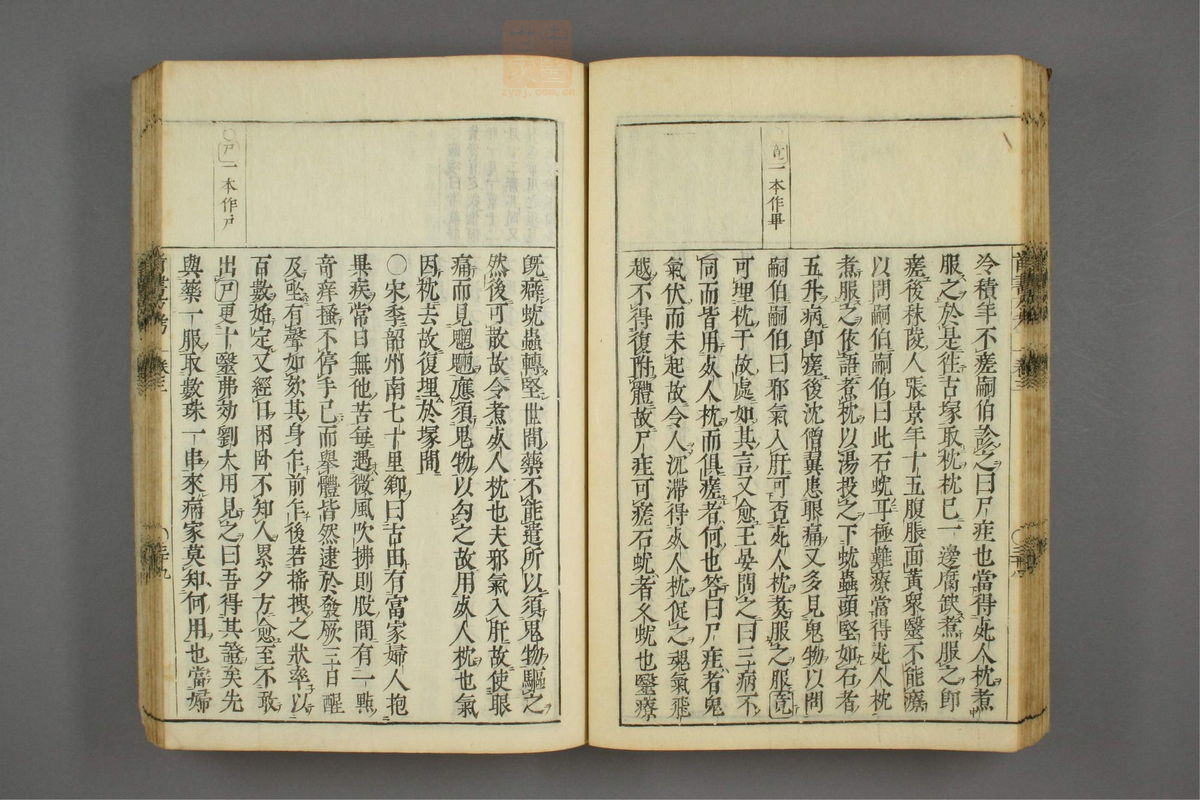 竟一本作畢
冷積年不瘥嗣伯診之曰尸疰也當得死人枕煮
服之於是往古塚取枕枕已一邊腐缺煮服之即
瘥後秣陵人張景年十五腹脹面黃衆醫不能療
以問嗣伯嗣伯曰此石蚘耳極難療當得死人枕
煮服之依語煮枕以湯投之下蚘蟲頭堅如石者
五升病卽瘥後沈僧翼患眼痛又多見鬼物以問
嗣伯嗣伯曰邪氣入肝可覓死人枕煮服之服竟
可埋枕于故處如其言又愈王晏問之曰三病不
同而皆用死人枕而俱瘥者何也答曰尸疰者鬼
氣伏而未起故令人沉滯得死人枕促之魂氣飛
越不得復附體故尸疰可瘥石蚘者久蚘也醫療
卷三
三十八
既癖蚘蟲轉堅世間藥不能遣所以須鬼物驅之
然後可散故令煮死人枕也夫邪氣入肝故使眼
痛而見魍魎應須鬼物以勾之故用死人枕也氣
因枕去故復埋於塚間
〇宋季韶州南七十里鄉曰古田有富家婦人抱
果疾常日無他苦每遇微風吹拂則股間有一點
奇痒搔不停手已而舉體皆然逮於發厥三日醒
及坐有聲如欬其身乍前乍後若搖拽之狀率以
百數始定又經日困卧不知人累夕方愈至不敢
出尸更十醫弗効劉大用見之曰吾得其證矣先
與藥一服取數珠一串來病家莫知何用也當婦
〇尸一本作戶
卷三
三十九
zysj.com.cn